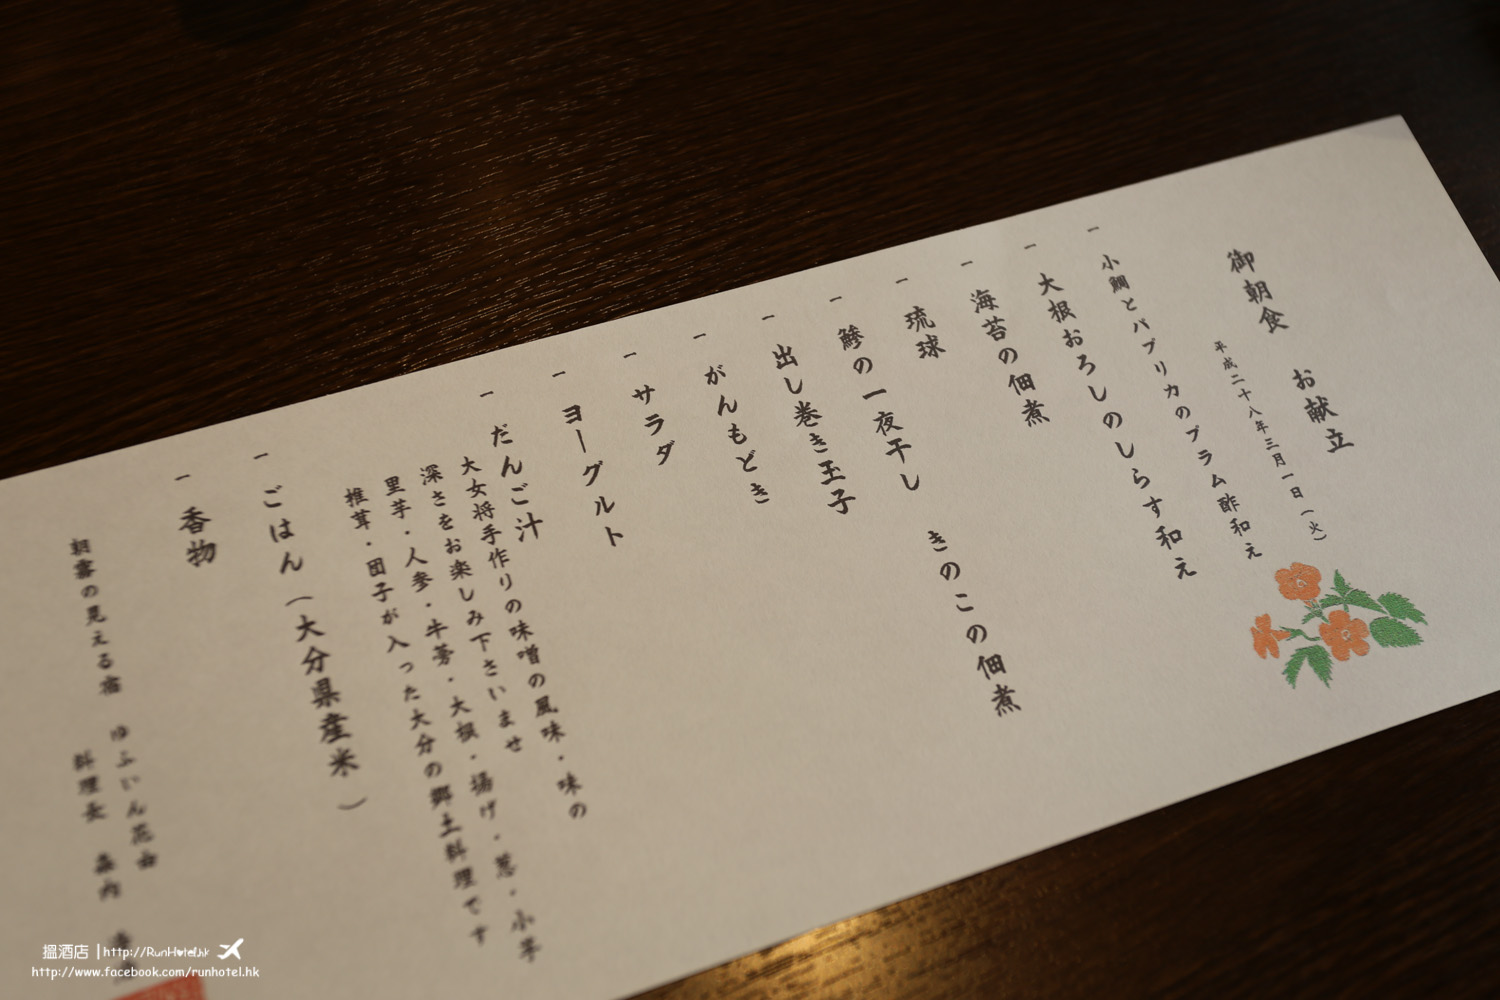 御朝食 お献立
平成二十八年三月一日(火)
一 小鯛とパプリカのプラム酢和え
一 大根おろしのしらす和え
一 海苔の佃煮 きのこの佃煮
一 琉球
一 鯵の一夜干し
一 出し巻き玉子
一 がんもどき
一 サラダ
一 ヨーグルト
一 だんご汁
大女将手作りの味噌の風味・味の
深さをお楽しみ下さいませ
里芋・人参・牛蒡・大根・揚げ・葱・小芋
椎茸・団子が入った大分の郷土料理です
一 ごはん(大分県産米)
一 香物
朝霧の見える宿 ゆふいん花由
料理長
搵酒店 | http://RunHotel.hk
http://www.facebook.com/runhotel.hk